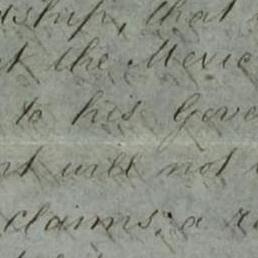 dship, that
the Mexic
to his Gove
will not
claims; a